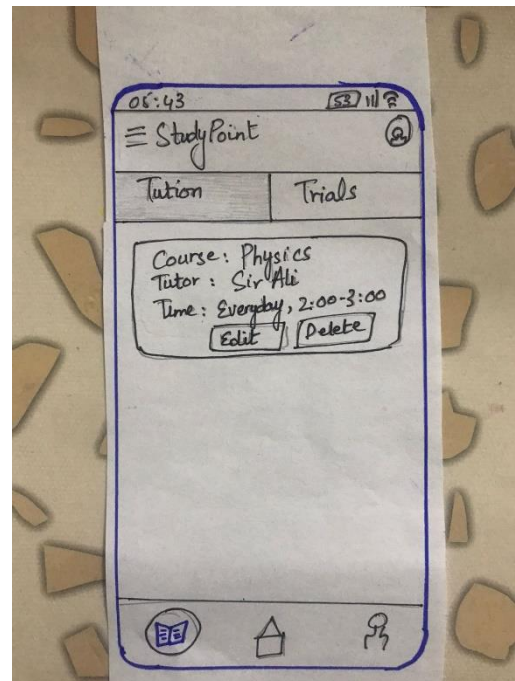 05:43 53
StudyPoint
Tution Trials
Course: Physics
Tutor: Sir Ali
Time: Everyday, 2:00-3:00
Edit Delete